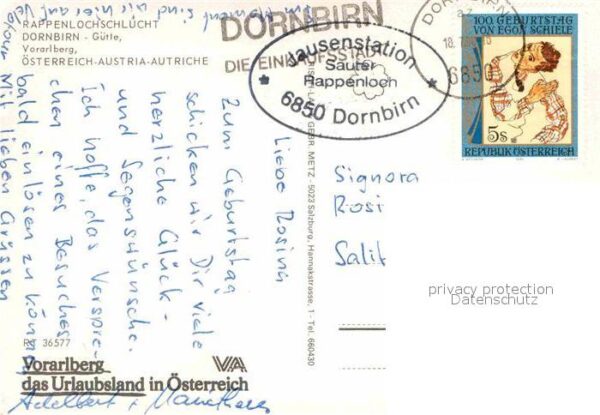 RAPPENLOCHSCHLUCHT
DORNBIRN - Gütle,
Vorarlberg,
ÖSTERREICH-AUSTRIA-AUTRICHE
DORNBIRN
DIE EINKAUFSSTADT
Jausenstation
Sauter
Rappenloch
6850 Dornbirn
DORNBIRN
6850
100. GEBURTSTAG
VON EGON SCHIELE
5s
REPUBLIK ÖSTERREICH
Liebe Rosina
Zum Geburtstag
schicken wir Dir viele
herzliche Glück-
und Segenswünsche.
Ich hoffe, das Verspre-
chen eines Besuches
bald einlösen zu können
Mit lieben Grüssen
sind wir hier auf
Adelbert +
Signora
Rosi
Salit
GEBR. METZ - 5023 Salzburg, Hannakstrasse, 1 - Tel. 660430
privacy protection
Datenschutz
36577
Vorarlberg
das Urlaubsland in Österreich